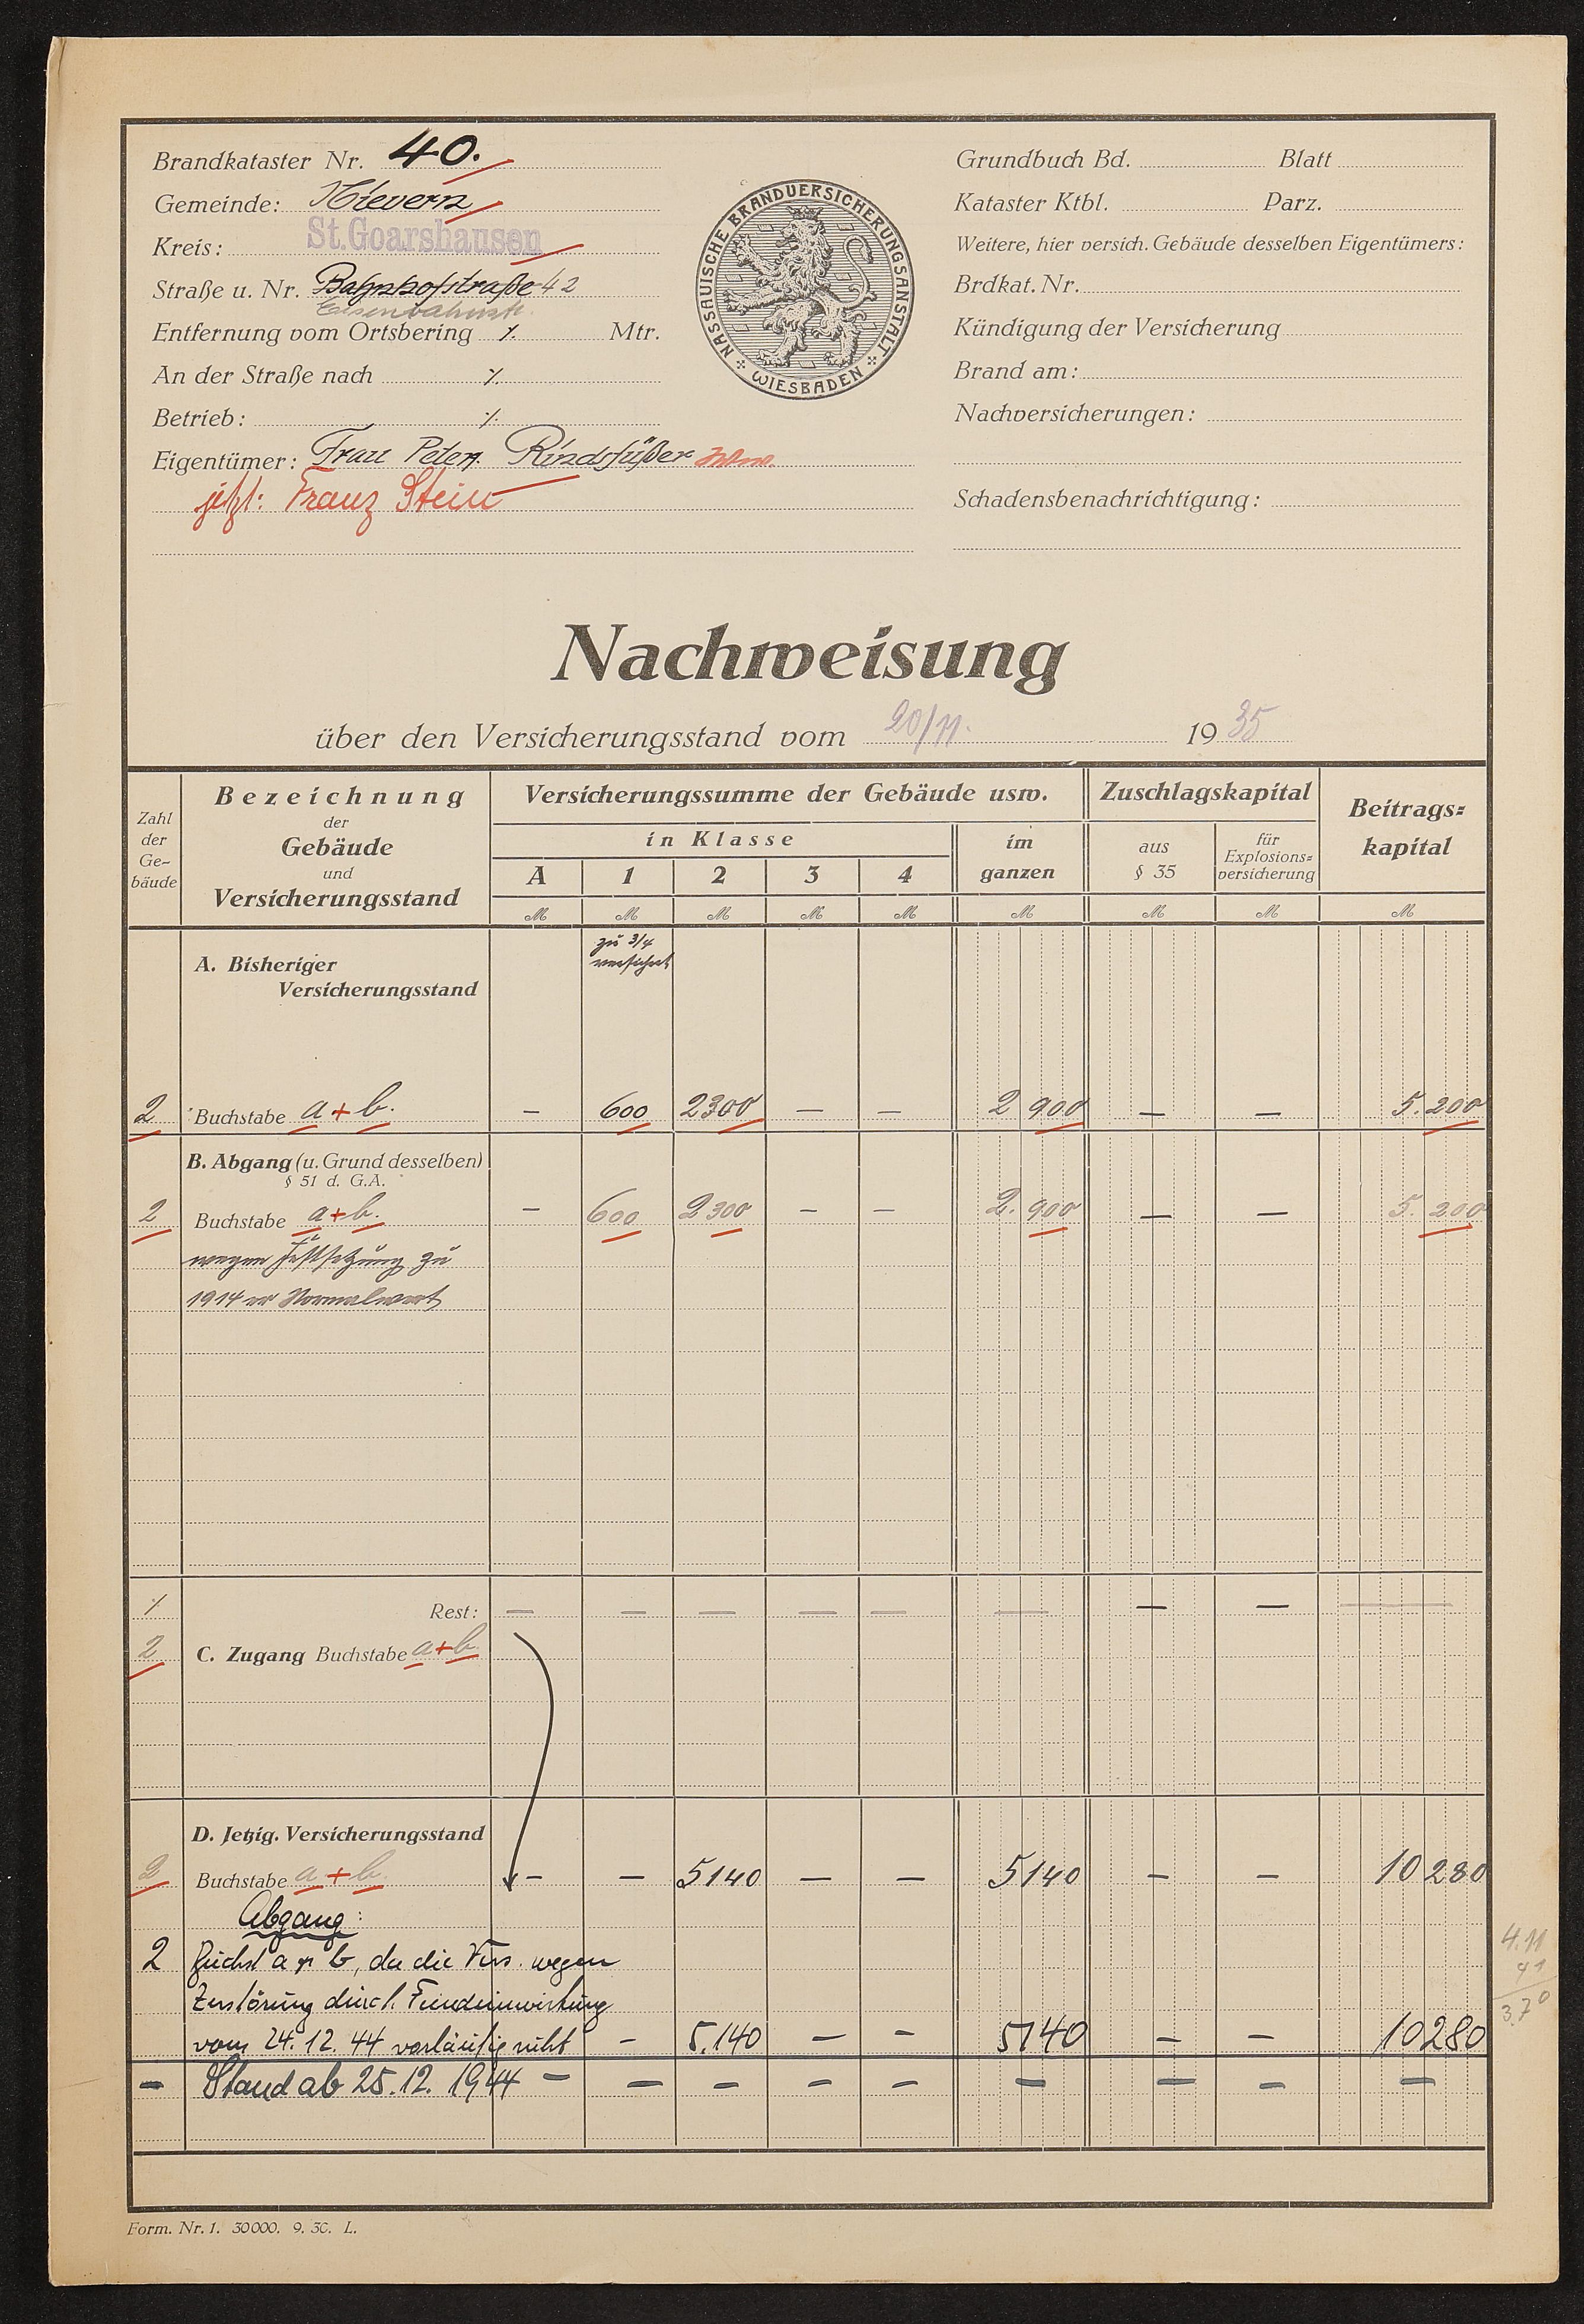 Brandkataster Nr. 40.
Gemeinde: Nievern
Kreis: St. Goarshausen
Straße u. Nr. Bahnhofstraße 42
Eisenbahnstr.
Entfernung vom Ortsbering ⁒ Mtr.
An der Straße nach ⁒
Betrieb: ⁒
Eigentümer: Frau Peter Rindsfüßer Wwe.
jetzt: Franz Stein
NASSAUISCHE BRANDVERSICHERUNGSANSTALT
WIESBADEN
Grundbuch Bd. Blatt
Kataster Ktbl. Parz.
Weitere, hier versich. Gebäude desselben Eigentümers:
Brdkat. Nr.
Kündigung der Versicherung
Brand am:
Nachversicherungen:
Schadensbenachrichtigung:
Nachweisung
über den Versicherungsstand vom 20/11. 1935
Zahl der Ge-bäude
Bezeichnung der Gebäude und Versicherungsstand
Versicherungssumme der Gebäude usw.
in Klasse
A 1 2 3 4
im ganzen
Zuschlagskapital
aus § 35
für Explosions=versicherung
Beitrags=kapital
M M M M M M M M M
zu 3/4
versichert
A. Bisheriger
Versicherungsstand
2 Buchstabe a + b. — 600 2300 — — 2 900 — — 5.200
B. Abgang (u. Grund desselben)
§ 51 d. G.A.
2 Buchstabe a + b. — 600 2300 — — 2.900 — — 5.200
wegen Festsetzung zu
1914er Normalwert
⁒ Rest: — — — — — — — — —
2 C. Zugang Buchstabe a + b
D. Jetzig. Versicherungsstand
2 Buchstabe a + b — — 5140 — — 5140 — — 10280
Abgang:
2 Buchst a + b, da die Vers. wegen
Zerstörung durch Feindeinwirkung
vom 24.12.44 vorläufig ruht — 5.140 — — 5140 — — 10280
— Stand ab 25.12.1944 — — — — — — — — —
4.11
41
3.70
Form. Nr. 1. 30000. 9. 30. L.